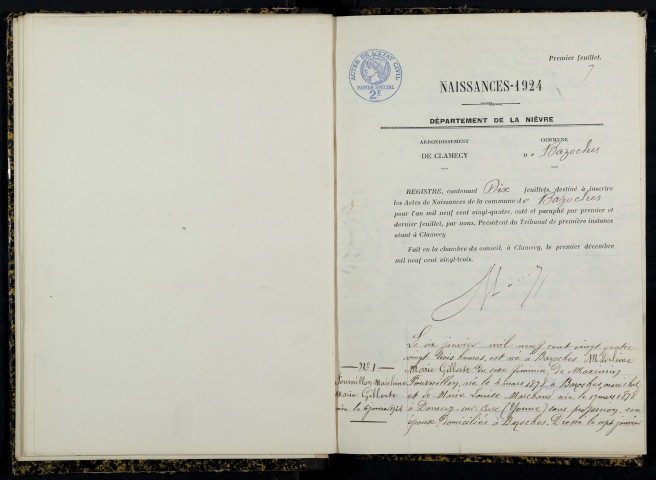 Premier feuillet.
7
ACTES DE L'ÉTAT CIVIL
PAPIER SPÉCIAL
2F
NAISSANCES-1924
DÉPARTEMENT DE LA NIÈVRE
ARRONDISSEMENT
DE CLAMECY
COMMUNE
De Bazoches
REGISTRE, contenant Dix feuillets, destiné à inscrire
les Actes de Naissances de la commune de Bazoches
pour l'an mil neuf cent vingt-quatre, coté et paraphé par premier et
dernier feuillet, par nous, Président du Tribunal de première instance
séant à Clamecy
Fait en la chambre du conseil, à Clamecy, le premier décembre
mil neuf cent vingt-trois.
N° 1
Marie Gilberte
née le 6 janvier 1924
Le six janvier mil neuf cent vingt quatre
vingt trois heures, est née à Bazoches
Marie Gilberte du sexe féminin de Maximin
né le 4 mars 1878 à Bazoches
et de Marie Louise née le 17 mars 1878
à Domecy-sur-Cure (Yonne) sans profession, son
épouse, domiciliés à Bazoches. Dressé le sept janvier